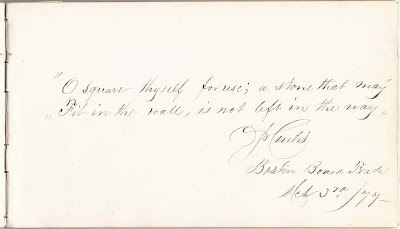 "O square thyself for use; a stone that may
"Fit in the wall, is not left in the way"
Curtis
Boston Board Trade
Mch 3rd /77—